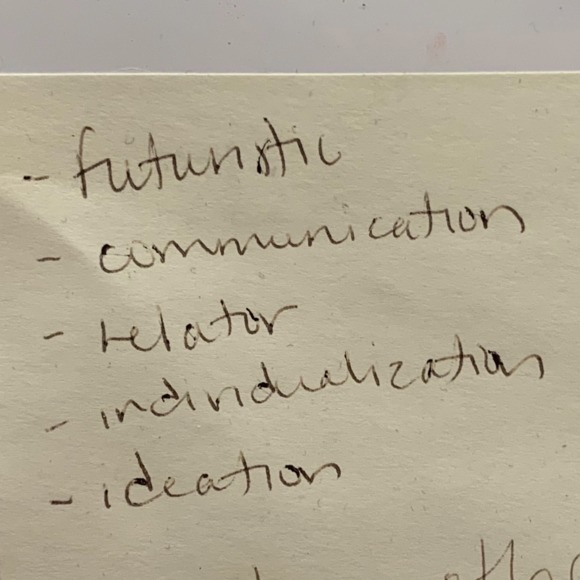 - futuristic
- communication
- relator
- individualization
- ideation